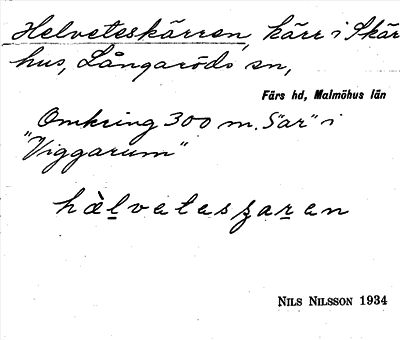 Helveteskärren, kärr i Skär
hus, Långaröds sn,
Färs hd, Malmöhus län
Omkring 300 m. S"ar" i
"Viggarum"
hὰl̲vetesʒar̲en
NILS NILSSON 1934